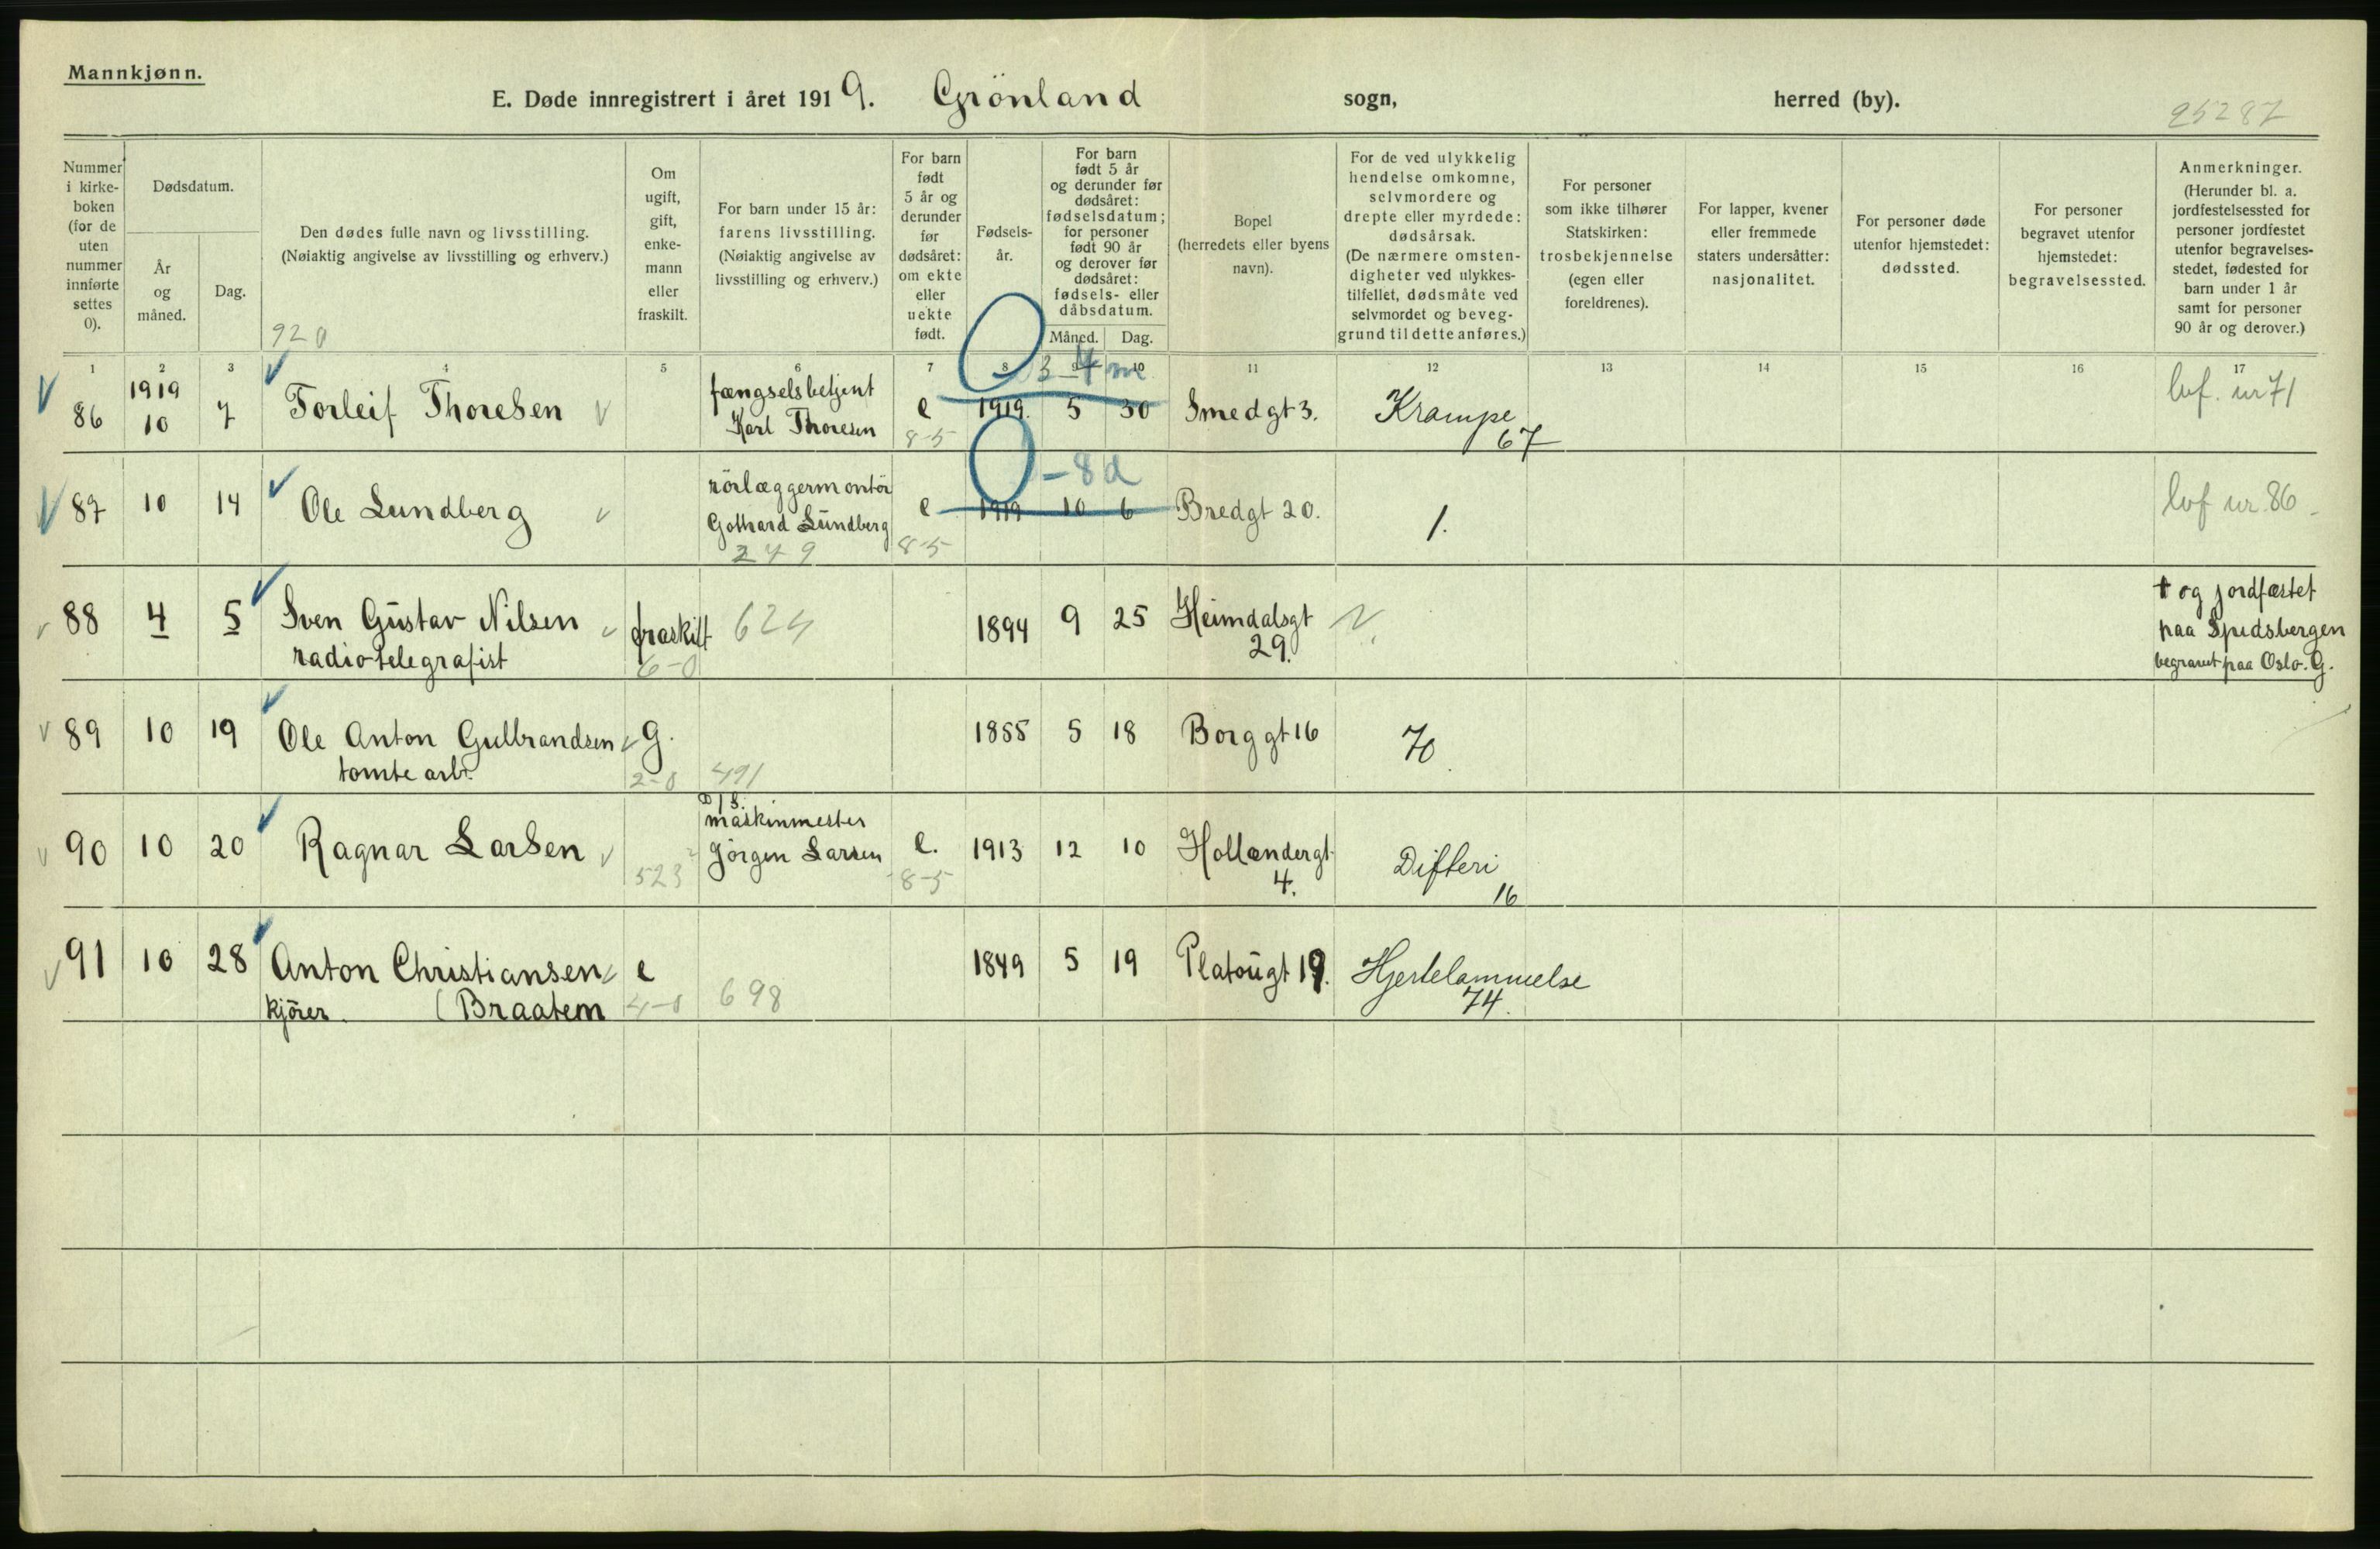 Mannkjønn.
E. Døde innregistrert i året 1919. Grönland sogn, herred (by).
25287
Nummer i kirke-boken (for de uten nummer innførte settes 0).
Dødsdatum.
År og måned.
Dag.
Den dødes fulle navn og livsstilling.
(Nøiaktig angivelse av livsstilling og erhverv.)
920
Om ugift, gift, enke-mann eller fraskilt.
For barn under 15 år: farens livsstilling.
(Nøiaktig angivelse av livsstilling og erhverv.)
For barn født 5 år og derunder før dødsåret: om ekte eller uekte født.
Fødsels-år.
For barn født 5 år og derunder før dødsåret: fødselsdatum; for personer født 90 år og derover før dødsåret: fødsels- eller dåbsdatum.
Måned. Dag.
Bopel (herredets eller byens navn).
For de ved ulykkelig hendelse omkomne, selvmordere og drepte eller myrdede: dødsårsak.
(De nærmere omsten-digheter ved ulykkes-tilfellet, dødsmåte ved selvmordet og beveg-grund til dette anføres.)
For personer som ikke tilhører Statskirken: trosbekjennelse (egen eller foreldrenes).
For lapper, kvener eller fremmede staters undersåtter: nasjonalitet.
For personer døde utenfor hjemstedet: dødssted.
For personer begravet utenfor hjemstedet: begravelsessted.
Anmerkninger.
(Herunder bl. a. jordfestelsessted for personer jordfestet utenfor begravelses-stedet, fødested for barn under 1 år samt for personer 90 år og derover.)
1 2 3 4 5 6 7 8 9 10 11 12 13 14 15 16 17
3-4 me
86 1919 10 7 Torleif Thoresen fængselsbetjent Karl Thoresen e 8-5 1919. 5 30 Smedgt 3. Krampe 67 lvf. nr 71
-8d
87 10 14 Ole Lundberg rörlæggermontör Gothard Lundberg 249 e 8-5 1919 10 6 Bredgt 20. 1. lvf nr. 86
88 4 5 Sven Gustav Nilsen fraskilt 624 1894 9 25 Heimdalsgt 29. † og jordfæstet
radiotelegrafist 6-0 paa Spidsbergen
begravet paa Oslo. G.
89 10 19 Ole Anton Gulbrandsen g. 1855 5 18 Borggt 16 70
tomte arb. 2-0 491
90 10 20 Ragnar Larsen 523 D/S. maskinmester Jörgen Larsen e. 8-5 1913 12 10 Hollændergt 4. Difteri 16
91 10 28 Anton Christiansen e 698 1849 5 19 Platougt 19. Hjertelammelse 74.
kjörer. (Braatem 4-0